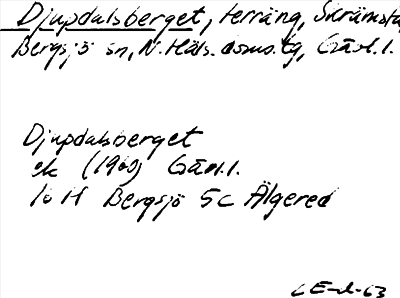 Djupdalsberget, terräng, Skrämsta
Bergsjö sn, N. Häls. doms.tg, Gävl.l.
Djupdalsberget
ek (1960) Gävl.l.
16 H Bergsjö 5c Älgered